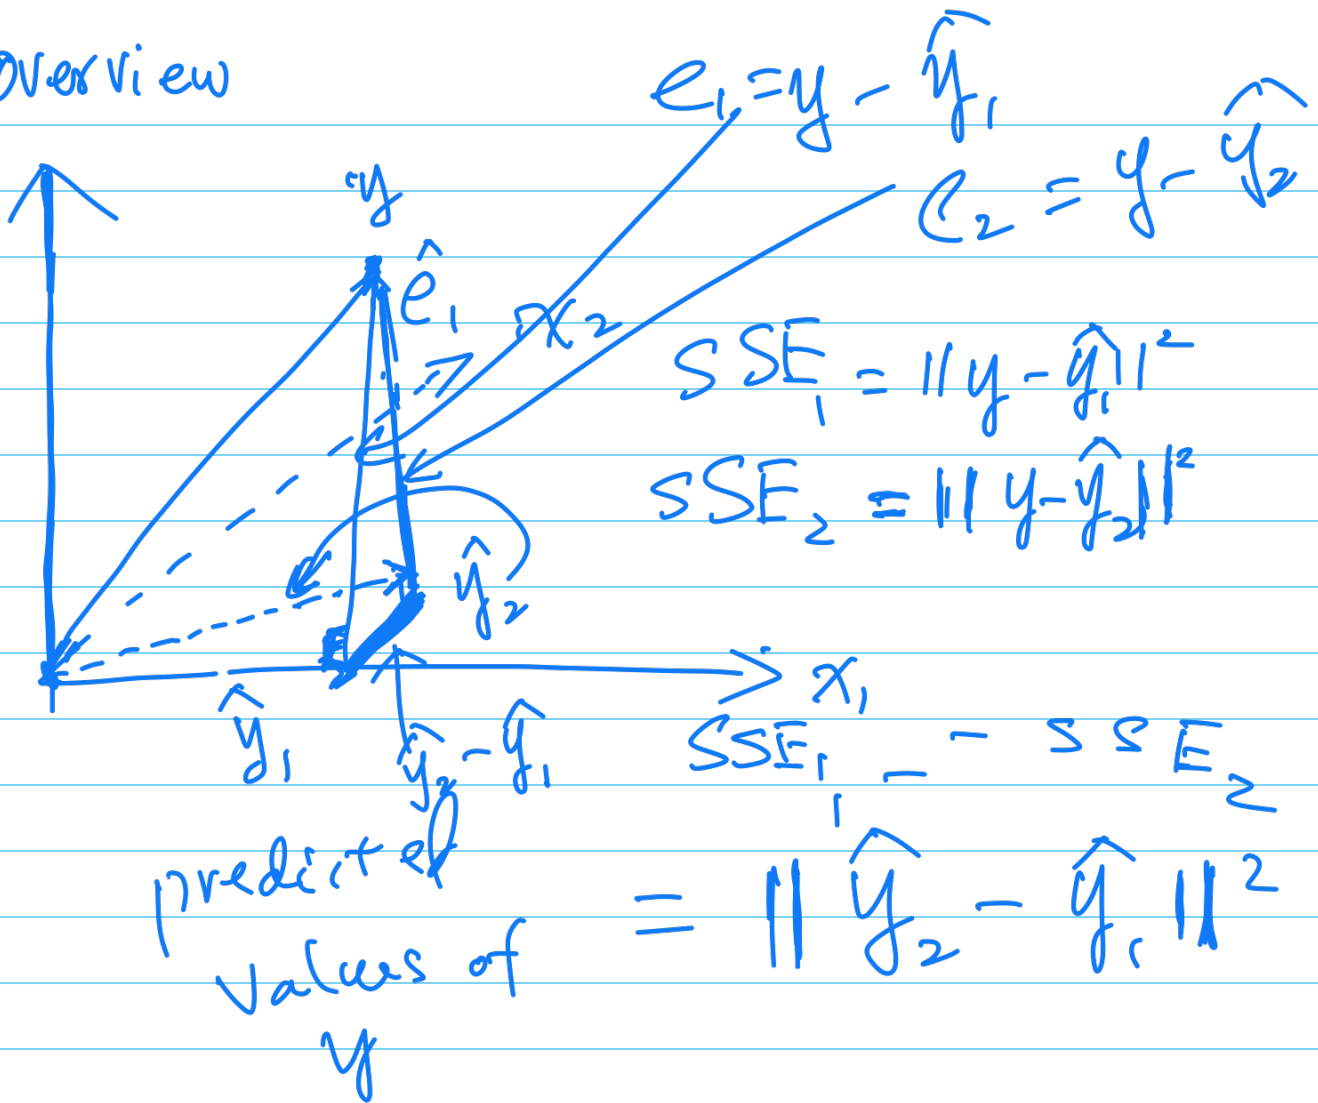 overview
e₁ = y - ŷ₁
e₂ = y - ŷ₂
y
ê₁
x₂
SSE₁ = ||y - ŷ₁||²
SSE₂ = ||y - ŷ₂||²
ŷ₂
x₁
ŷ₁
ŷ₂ - ŷ₁
SSE₁ - SSE₂
= ||ŷ₂ - ŷ₁||²
predicted
values of
y